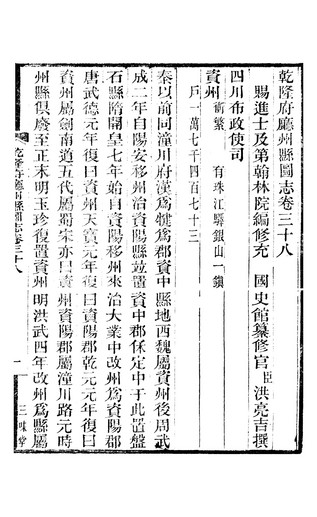 乾隆府廳州縣圖志卷三十八
賜進士及第翰林院編修充 國史館纂修官臣洪亮吉撰
四川布政使司
資州 衝繁 有珠江驛銀山一鎮
戶一萬七千四百七十三
秦以前同潼川府漢爲犍爲郡資中縣地西魏屬資州後周武
成二年自陽安移州治資陽縣竝置資中郡保定中于此置盤
石縣隋開皇七年始自資陽移州來治大業中改州爲資陽郡
唐武德元年復曰資州天寶元年復曰資陽郡乾元元年復曰
資州屬劍南道五代屬蜀宋亦曰資州資陽郡屬潼川路元時
州縣俱廢至正末明玉珍復置資州 明洪武四年改州爲縣屬
乾隆府廳州縣圖志卷三十八
一
三味堂